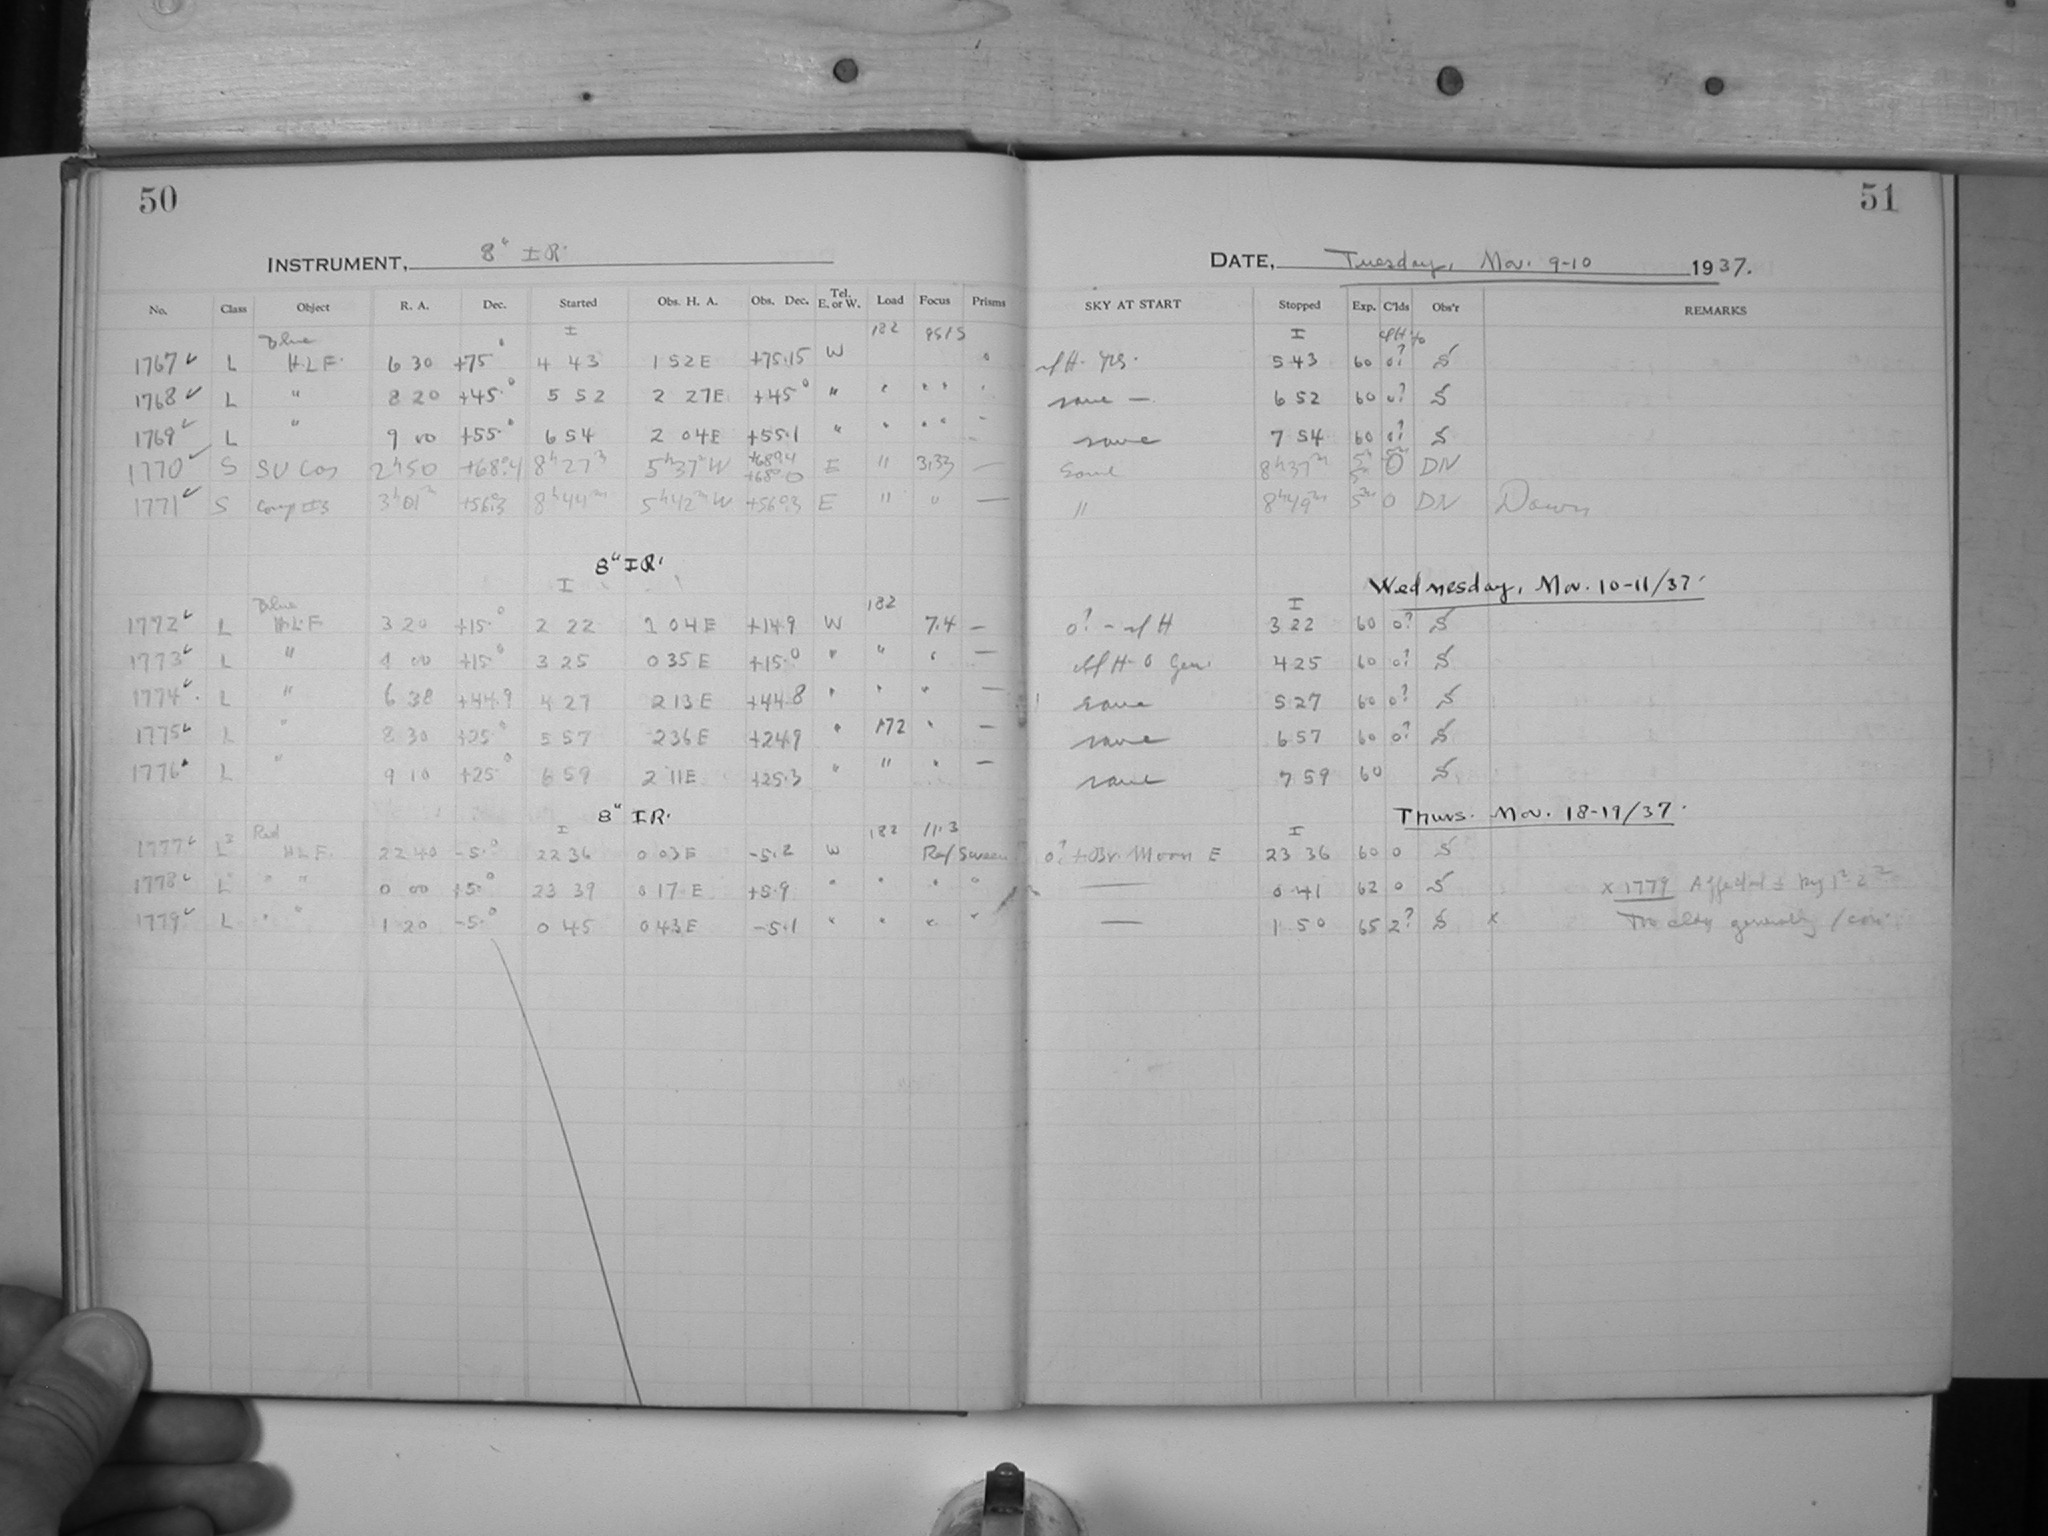 50
INSTRUMENT, 8" IR.
No. Class Object R. A. Dec. Started Obs. H. A. Obs. Dec. Tel. E. or W. Load Focus Prisms
Blue I 182
1767 L H.L.F. 6 30 +75° 4 43 1 52E +75.15 W
1768 L " 8 20 +45.° 5 52 2 27E +45° " " " "
1769 L " 9 00 +55.° 6 54 2 04E +55.1 " " " "
1770 S SU Cas 2h50 +68°.4 8h27m 5h37m W +68°.4 +68°.0 E " 3,33 —
1771 S Comp 3h01m +56°.3 8h44m 5h42m W +56°.3 E " " —
8" IR.
I
Blue 182
1772 L H.L.F 3 20 +15.° 2 22 1 04E +14.9 W 7.4 —
1773 L " 4 00 +15° 3 25 0 35 E +15.0 " " " —
1774 L " 6 38 +44.9 4 27 2 13 E +44.8 " " " —
1775 L " 8 30 +25° 5 57 2 36 E +24.9 " 172 " —
1776 L " 9 10 +25.° 6 59 2 11E +25.3 " " " —
8" IR.
Red I 182 11.3
1777 L H.L.F. 22 40 -5.° 22 36 0 03 E -5.2 W Ref Screen
1778 L " " 0 00 +5.° 23 39 0 17 E +5.9 " " " "
1779 L " " 1 20 -5.° 0 45 0 43 E -5.1 " " " "
51
DATE, Tuesday, Nov. 9-10 1937.
SKY AT START Stopped Exp. C'lds Obs'r REMARKS
I
5 43 60 0? S
same — 6 52 60 0? S
same 7 54 60 0? S
Same 8h37m 5m 0 DN
" 8h49m 5m 0 DN Dawn
Wednesday, Nov. 10-11/37.
I
0? - H 3 22 60 0? S
H - 0 Gen. 4 25 60 0? S
same 5 27 60 0? S
same 6 57 60 0? S
same 7 59 60 S
Thurs. Nov. 18-19/37.
I
0? + Br. Moon E 23 36 60 0 S
— 0 41 62 0 S x 1779 Affected ± by
— 1 50 65 2? S x Too cldy generally